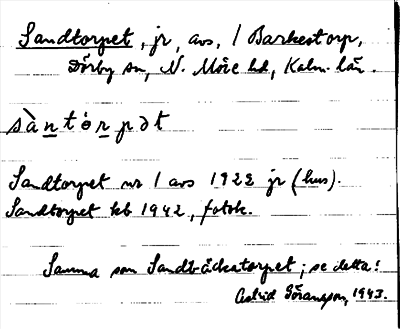 Sandtorpet, jr, avs, / Barkestorp,
Dörby sn, N. Möre hd, Kalm. län.
sàntòrpət
Sandtorpet nr 1 avs 1922 jr (hus).
Sandtorpet kb 1942, fotok.
Samma som Sandbäckatorpet; se detta!
Astrid Göransson, 1943.